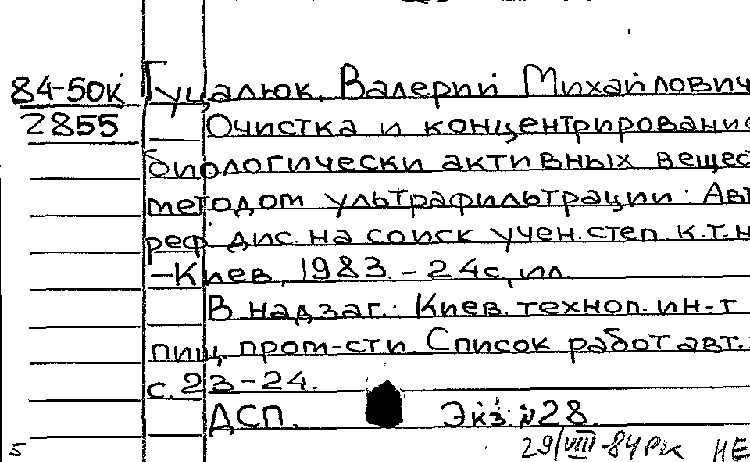 84-50к Гуцалюк, Валерий Михайлович
2855 Очистка и концентрирование
биологически активных вещес
методом ультрафильтрации: Авт
реф. дис. на соиск учен. степ к.т.н
-Киев, 1983. - 24с, ил.
В надзаг.: Киев. технол. ин-т
пищ. пром-сти. Список работ авт.:
с. 23-24.
ДСП. Экз. №28.
29/VIII-84 РК НЕ
5